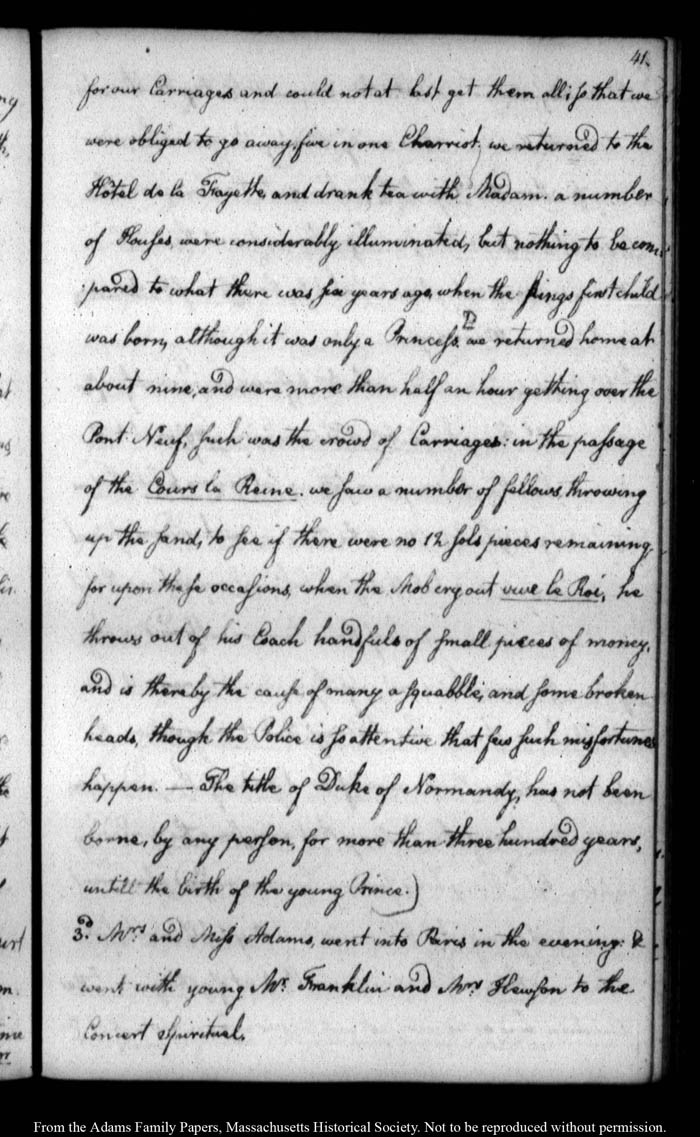 41.
for our Carriages and could not at last get them all; so that we
were obliged to go away, five in one Charriot; we returned to the
Hôtel de la Fayette, and drank tea with Madam. a number
of Houses, were considerably illuminated, but nothing to be com-
pared to what there was, six years ago, when the kings first child
was born, although it was only a Princess. we returned home at
about nine, and were more than half an hour getting over the
Pont Neuf, such was the crowd of Carriages: in the passage
of the Cours la Reine. we saw a number of fellows, throwing
up the sand, to see if there were no 12 sols pieces remaining.
for upon these occasions, when the Mob cry out vive le Roi, he
throws out of his Coach handfuls of small pieces of money,
and is thereby the cause of many a squabble, and some broken
heads, though the Police is so attentive that few such misfortunes
happen. — The title of Duke of Normandy, has not been
borne, by any person, for more than three hundred years,
untill the birth of the young Prince.)
3.d Mrs and Miss Adams, went into Paris in the evening: &
went with young Mr. Franklin and Mrs Hewson to the
Concert Spirituel.
From the Adams Family Papers, Massachusetts Historical Society. Not to be reproduced without permission.